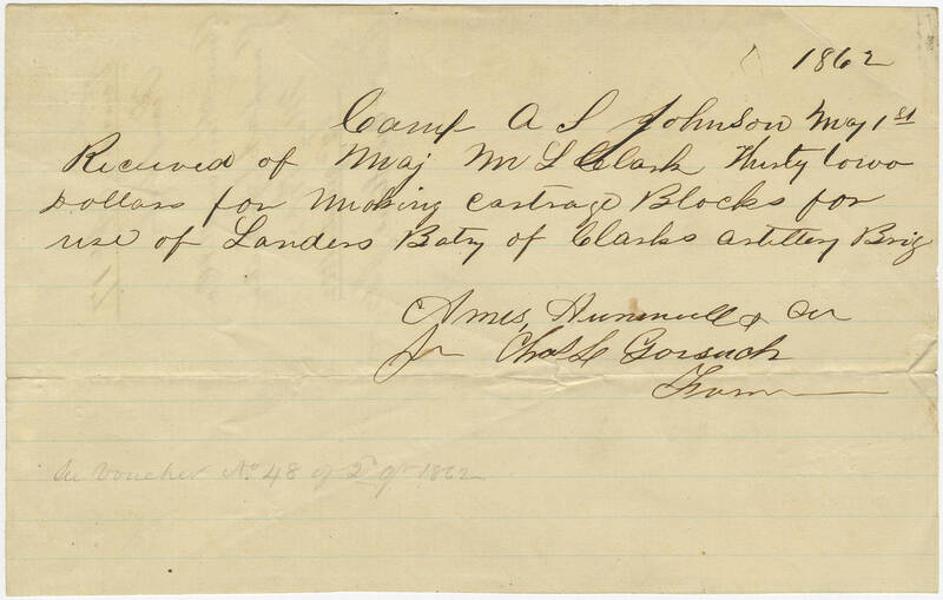 1862
Camp A S Johnson May 1st
Received of Maj M L Clark Thirty towo
Dollars for Making Cartrage Blocks for
use of Landers Batry of Clarks artillery Brig
Ames, Hunnwell & Co
Chas L Gorsuch
See Voucher No 48 of 2d qr 1862